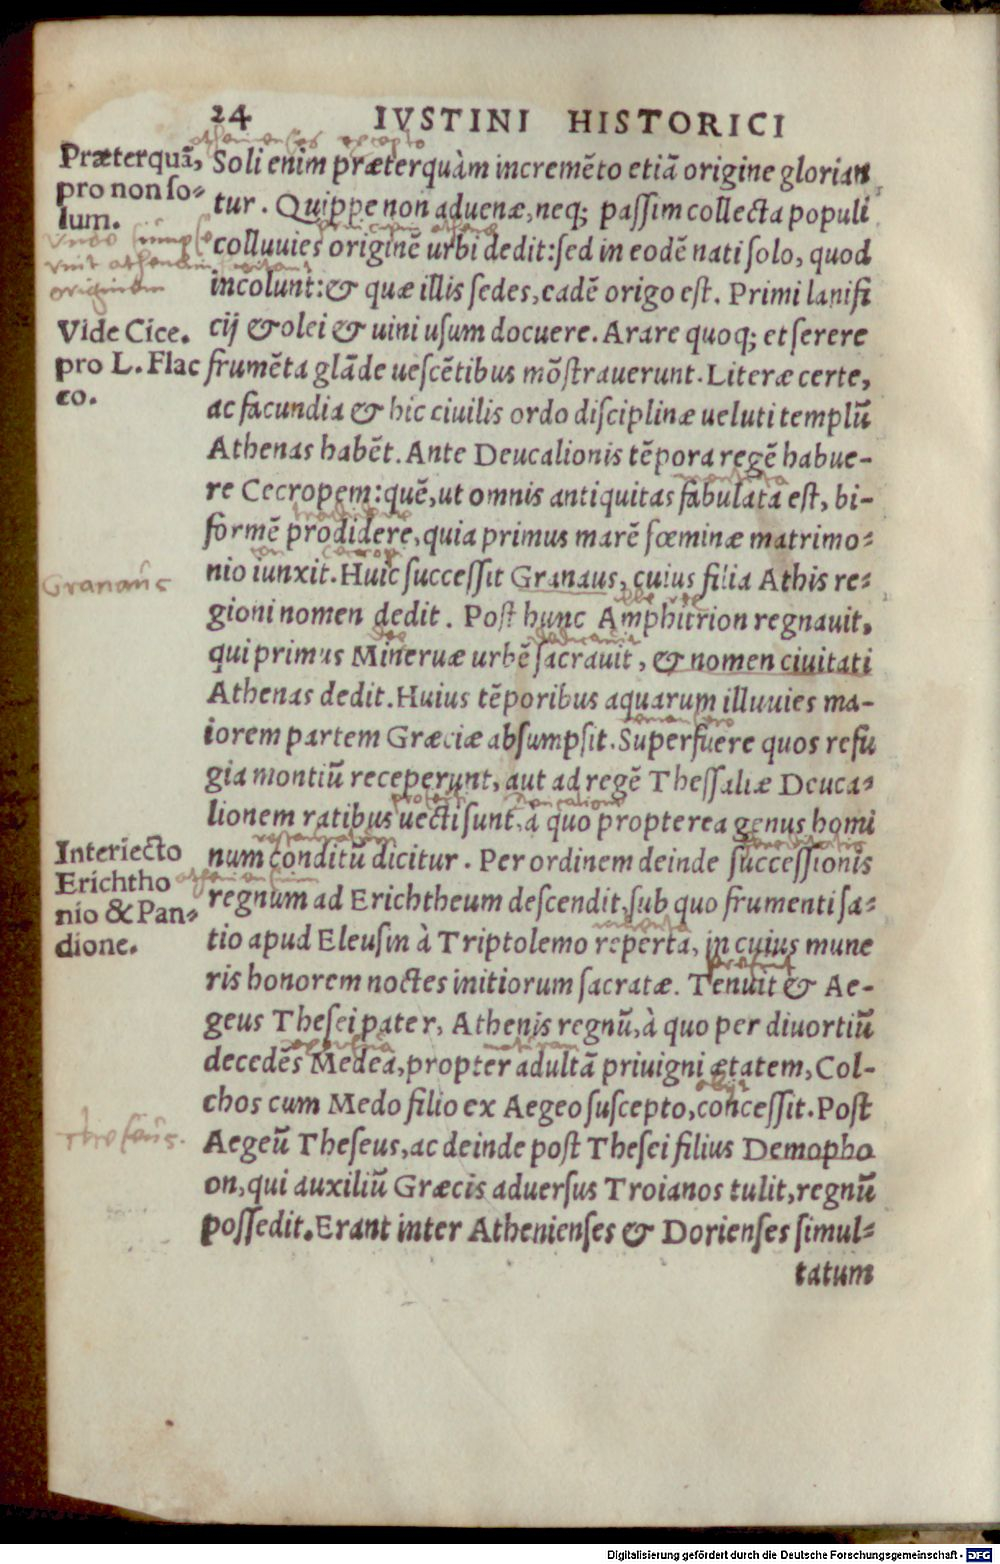 24 IVSTINI HISTORICI
athenienses excepto
Præterquā, pro non so-
lum.
Soli enim præterquàm incremēto etiā origine glorian
tur. Quippe non aduenæ, neq; passim collecta populi
colluuies originē urbi dedit: sed in eodē nati solo, quod
incolunt: & quæ illis sedes, eadē origo est. Primi lanifi
cij & olei & uini usum docuere. Arare quoq; et serere
Vide Cice.
pro L. Flac
co.
frumēta glāde uescētibus mōstrauerunt. Literæ certe,
ac facundia & hic ciuilis ordo disciplinæ ueluti templū
Athenas habēt. Ante Deucalionis tēpora regē habue-
re Cecropem: quē, ut omnis antiquitas fabulata est, bi-
formē prodidere, quia primus marē fœminæ matrimo-
nio iunxit. Huic successit Granaus, cuius filia Athis re-
Granaus
gioni nomen dedit. Post hunc Amphitrion regnauit,
qui primus Mineruæ urbē sacrauit, & nomen ciuitati
Athenas dedit. Huius tēporibus aquarum illuuies ma-
iorem partem Græciæ absumpsit. Superfuere quos refu
gia montiū receperunt, aut ad regē Thessaliæ Deuca-
lionem ratibus uecti sunt, à quo propterea genus homi
num conditū dicitur. Per ordinem deinde successionis
Interiecto
Erichtho
nio & Pan-
dione.
regnum ad Erichtheum descendit, sub quo frumenti sa-
tio apud Eleusin à Triptolemo reperta, in cuius mune
ris honorem noctes initiorum sacratæ. Tenuit & Ae-
geus Thesei pater, Athenis regnū, à quo per diuortiū
decedēs Medea, propter adultā priuigni ætatem, Col-
chos cum Medo filio ex Aegeo suscepto, concessit. Post
Aegeū Theseus, ac deinde post Thesei filius Demopho
Theseus.
on, qui auxiliū Græcis aduersus Troianos tulit, regnū
possedit. Erant inter Athenienses & Dorienses simul-
tatum
Digitalisierung gefördert durch die Deutsche Forschungsgemeinschaft - DFG